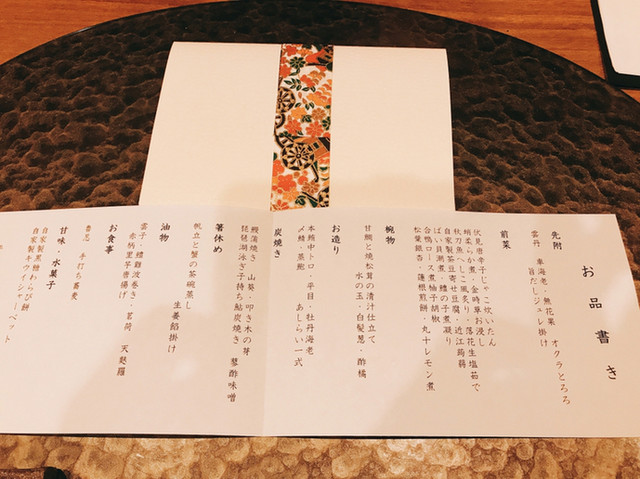 お品書き
先附
雲丹 車海老・無花果 オクラとろろ
旨だしジュレ掛け
前菜
伏見唐辛子じゃこ炊いたん
蛸柔らか煮・金時草お浸し
秋刀魚へしこ風炙り・落花生塩茹で
自家製茶豆寄せ豆腐・近江蒟蒻
ばい貝潮煮・鱧の子煮凝り
合鴨ロース煮柚子胡椒
松葉銀杏・蓮根煎餅・丸十レモン煮
椀物
甘鯛と焼松茸の清汁仕立て
水の玉・白髪葱・酢橘
お造り
本鮪中トロ・平目・牡丹海老
〆鯖・蒸鮑 あしらい一式
炭焼き
鰻蒲焼き・山葵・叩き木の芽
琵琶湖泳ぎ子持ち鮎炭焼き 蓼酢味噌
箸休め
帆立と蟹の茶碗蒸し
生姜餡掛け
油物
雲子・鱧難波巻き・茗荷 天麩羅
赤柄里芋唐揚げ
お食事
手打ち蕎麦
甘味・水菓子
自家製黒糖わらび餅
自家製キウイシャーベット